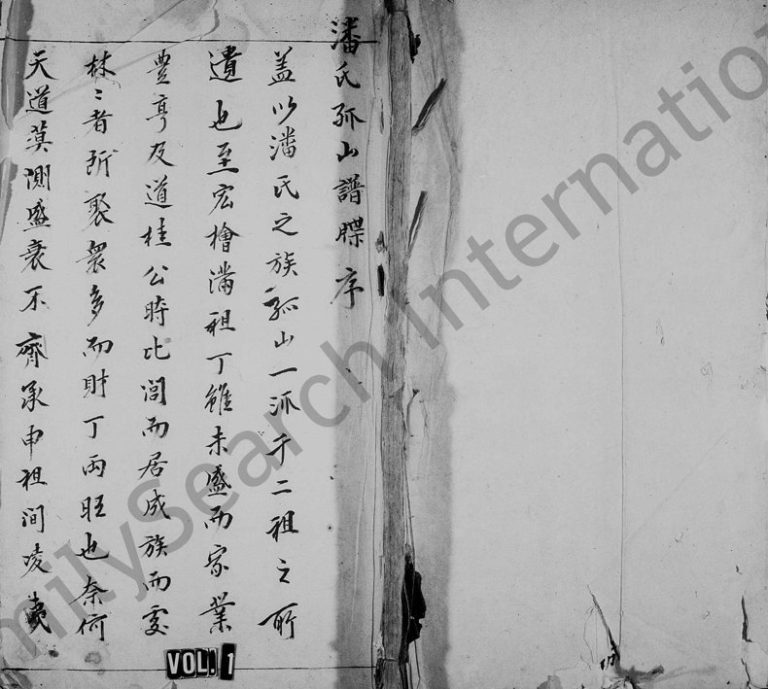 潘氏孤山譜牒序
盖以潘氏之族孤山一派千二祖之所
遺也至宏檜滿祖丁雖未盛而家業
豊亨及道桂公時比閭而居成族而處
林〻者所聚衆多而財丁両旺也奈何
天道莫測盛衰不齊承申祖間凌夷
VOL. 1
FamilySearch International